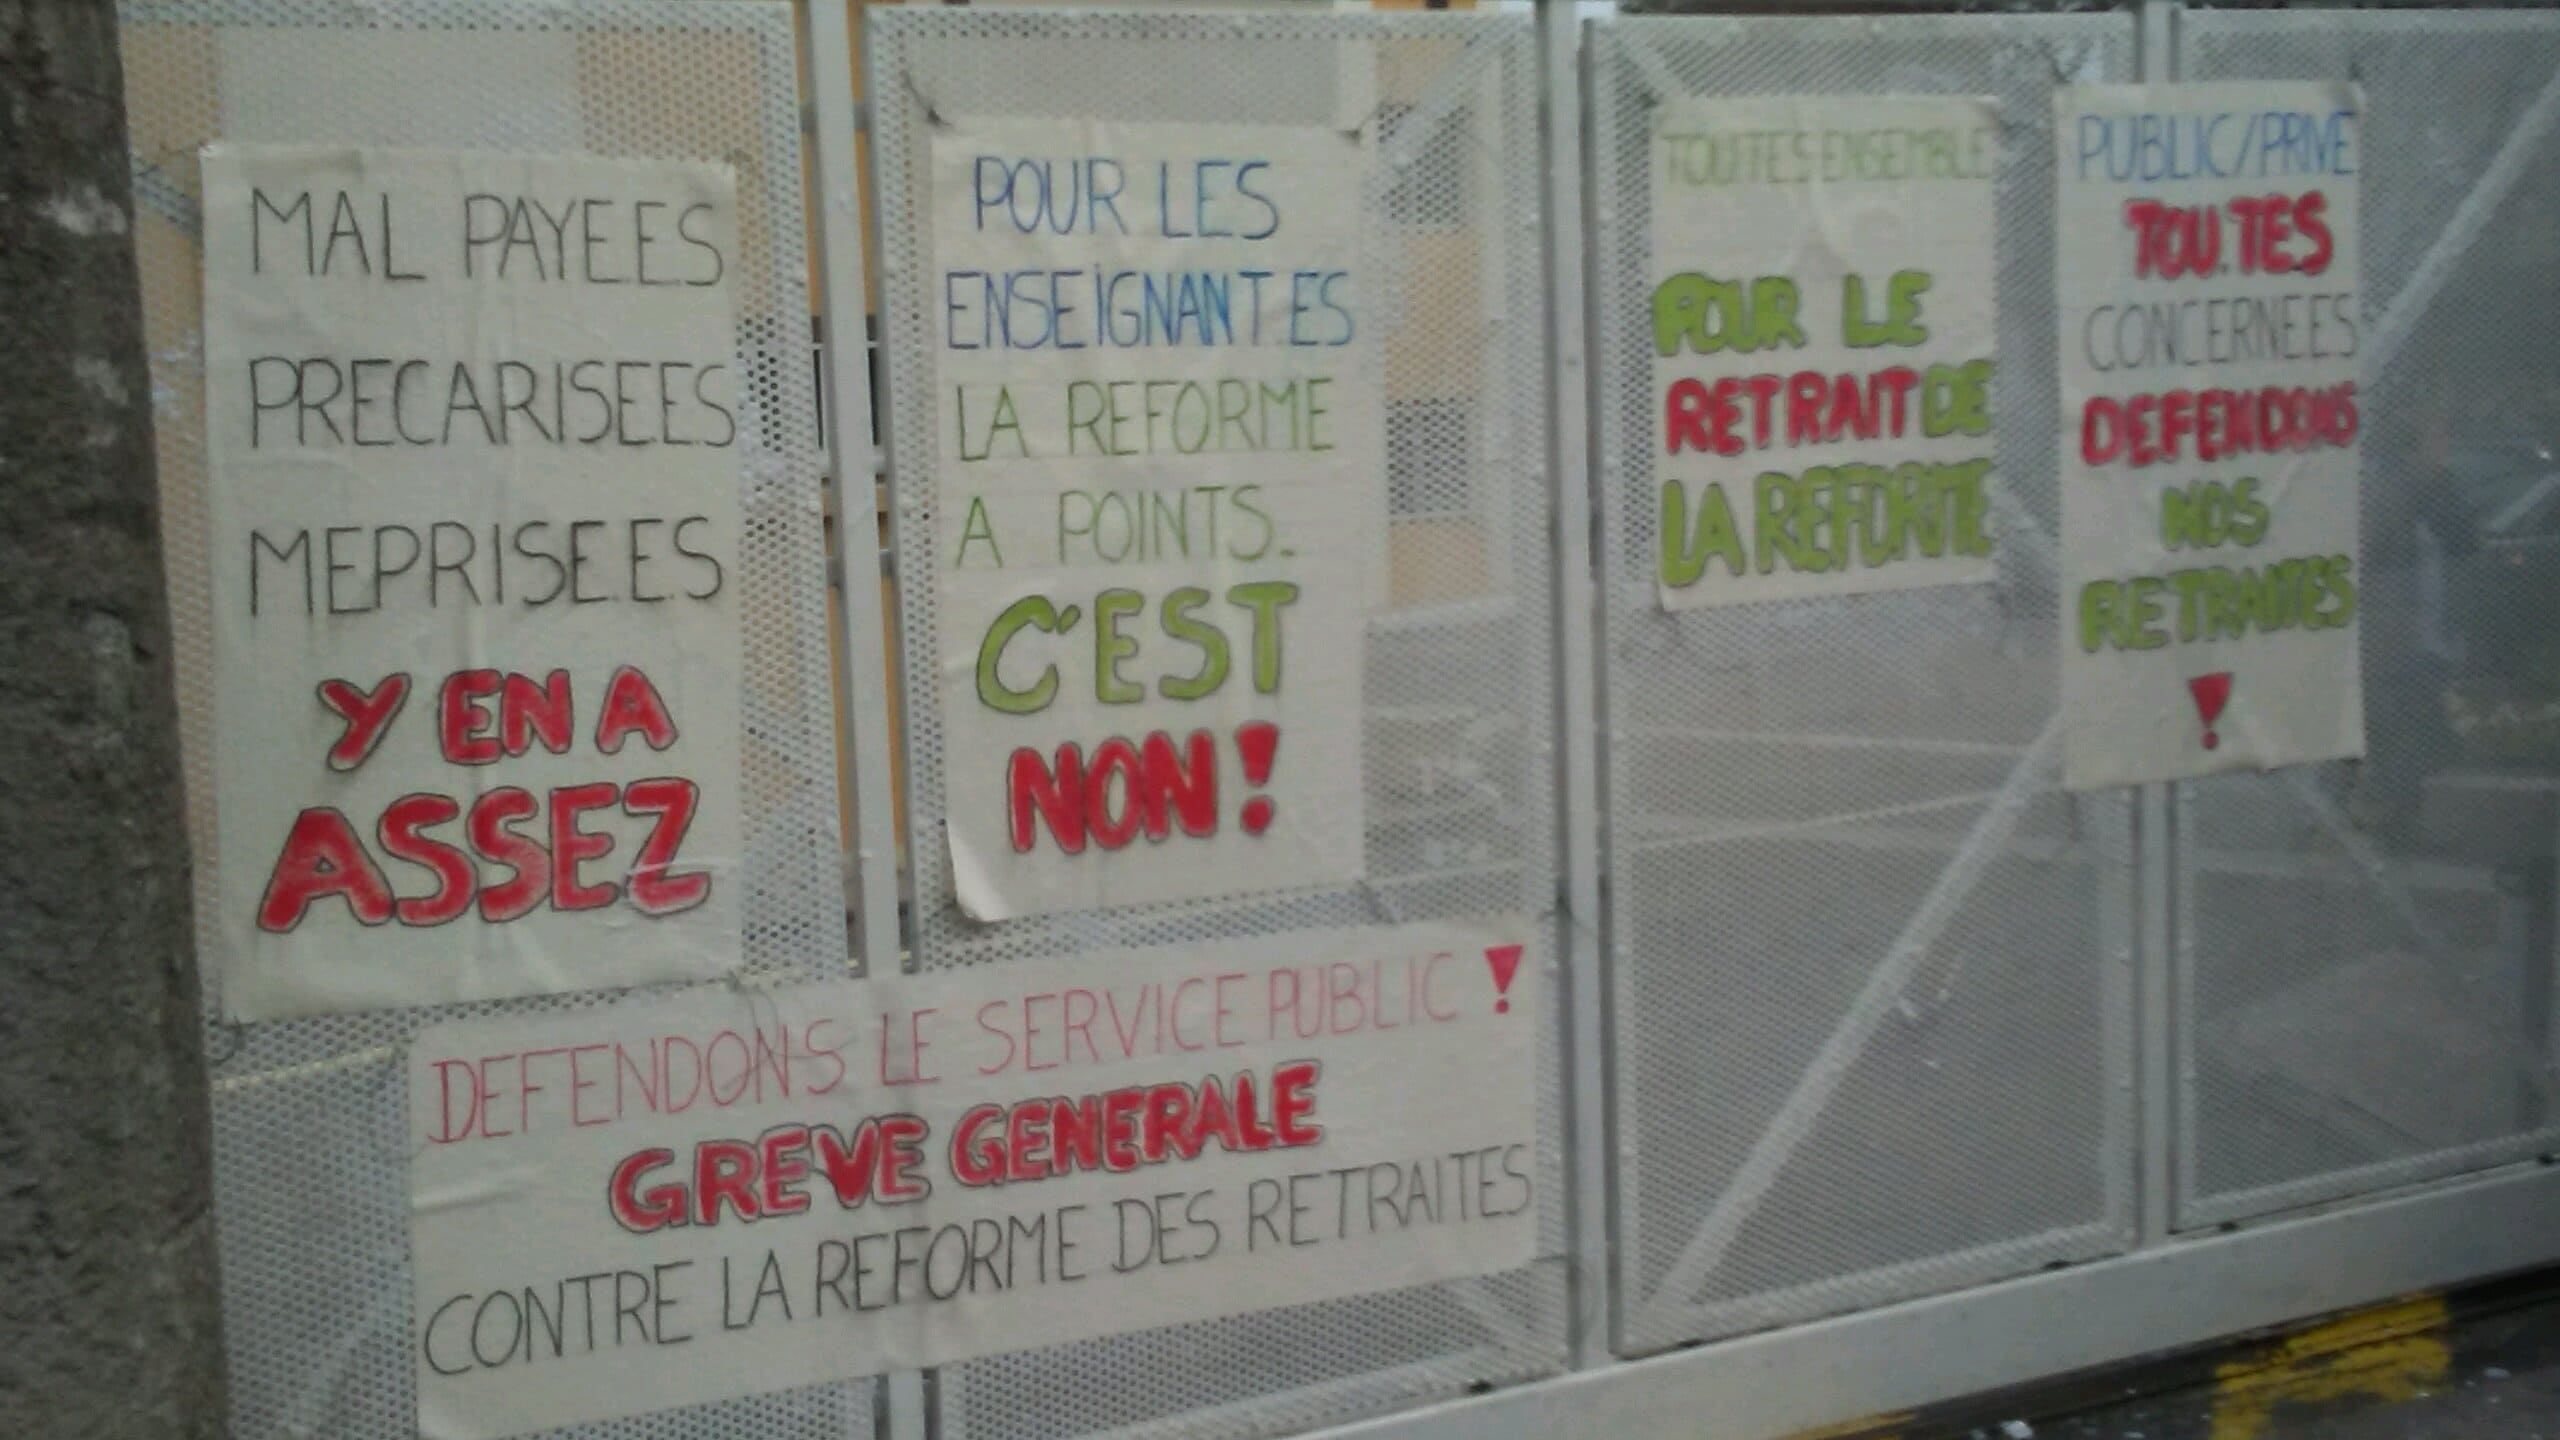 MAL PAYE.ES
PRECARISE.E.S
MEPRISE.E.S
Y EN A
ASSEZ
POUR LES
ENSEIGNANT.ES
LA REFORME
A POINTS.
C'EST
NON!
TOUTES ENSEMBLE
POUR LE
RETRAIT DE
LA REFORME
PUBLIC/PRIVE
TOU.TES
CONCERNEES
DEFENDONS
NOS
RETRAITES
!
DEFENDONS LE SERVICE PUBLIC !
GREVE GENERALE
CONTRE LA REFORME DES RETRAITES